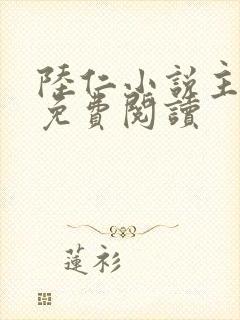 陸仁小說主
免費閱讀
蓮衫